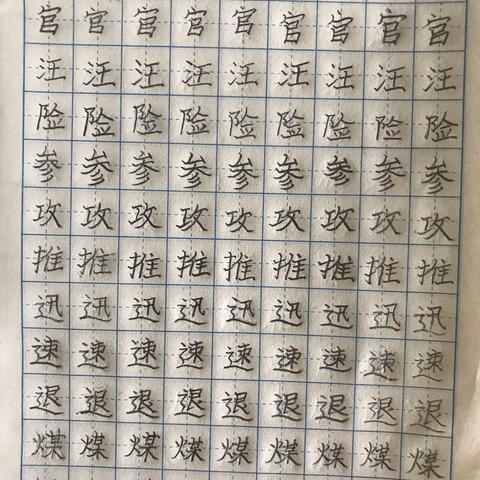 官官官官官官官官官
汪汪汪汪汪汪汪汪汪
险险险险险险险险险
参参参参参参参参参
攻攻攻攻攻攻攻攻攻
推推推推推推推推推
迅迅迅迅迅迅迅迅迅
速速速速速速速速速
退退退退退退退退退
煤煤煤煤煤煤煤煤煤